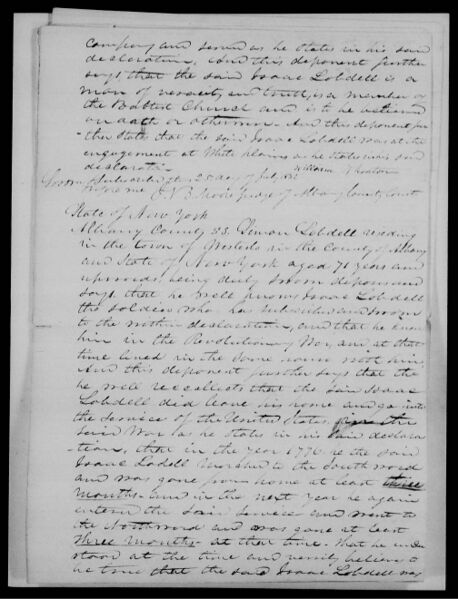 company and served as he states in his said
declaration. And this deponent further
says that the said Isaac Lobdell is a
man of veracity and truth, is a member of
the Babtist Church and is to be believed
on oath or otherwise. And this deponent fur
ther states that the said Isaac Lobdell was at the
engagement at White plains as he states in his said
declaration
Sworn & Subscribed this 25 day of July
before me Judge of Albany County Court
State of New York
Albany County SS. Lobdell residing
in the town of Westerlo in the County of Albany
and State of New York aged 71 years and
upwards being duly sworn deposes and
says that he well knows Isaac Lobdell
the soldier who has subscribed and sworn
to the within declaration, and that he knew
him in the Revolutionary War, and at that
time lived in the same house with him
And this deponent further says that the
he well recollects that the said Isaac
Lobdell did leave his home and go into
the service of the United States
said War as he states in his said declara
tions, that in the year 1776 he the said
Isaac Lobdell marched to the Southward
and was gone from home at least three
months and in the next year he again
entered the said service and went to
the Northward and was gone at least
three months at that time that he under
stood at the time and verily believe to
be true that the said Isaac Lobdell was